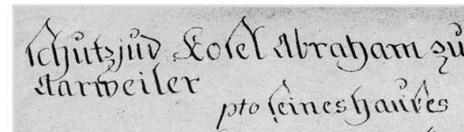 schutzjud Kosel Abraham zu
Aarweiler
pto seines hauses